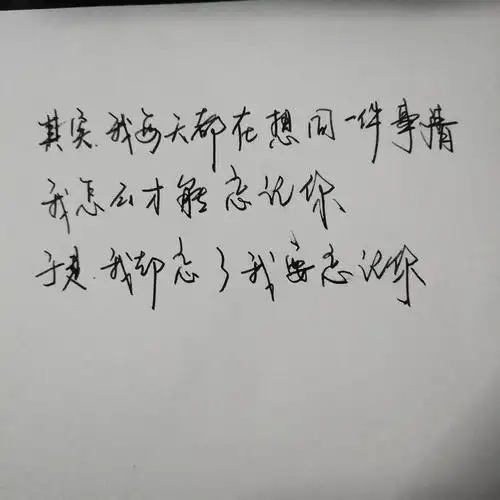 其实.我每天都在想同一件事情
我怎么才能忘记你
于是.我却忘了我要忘记你